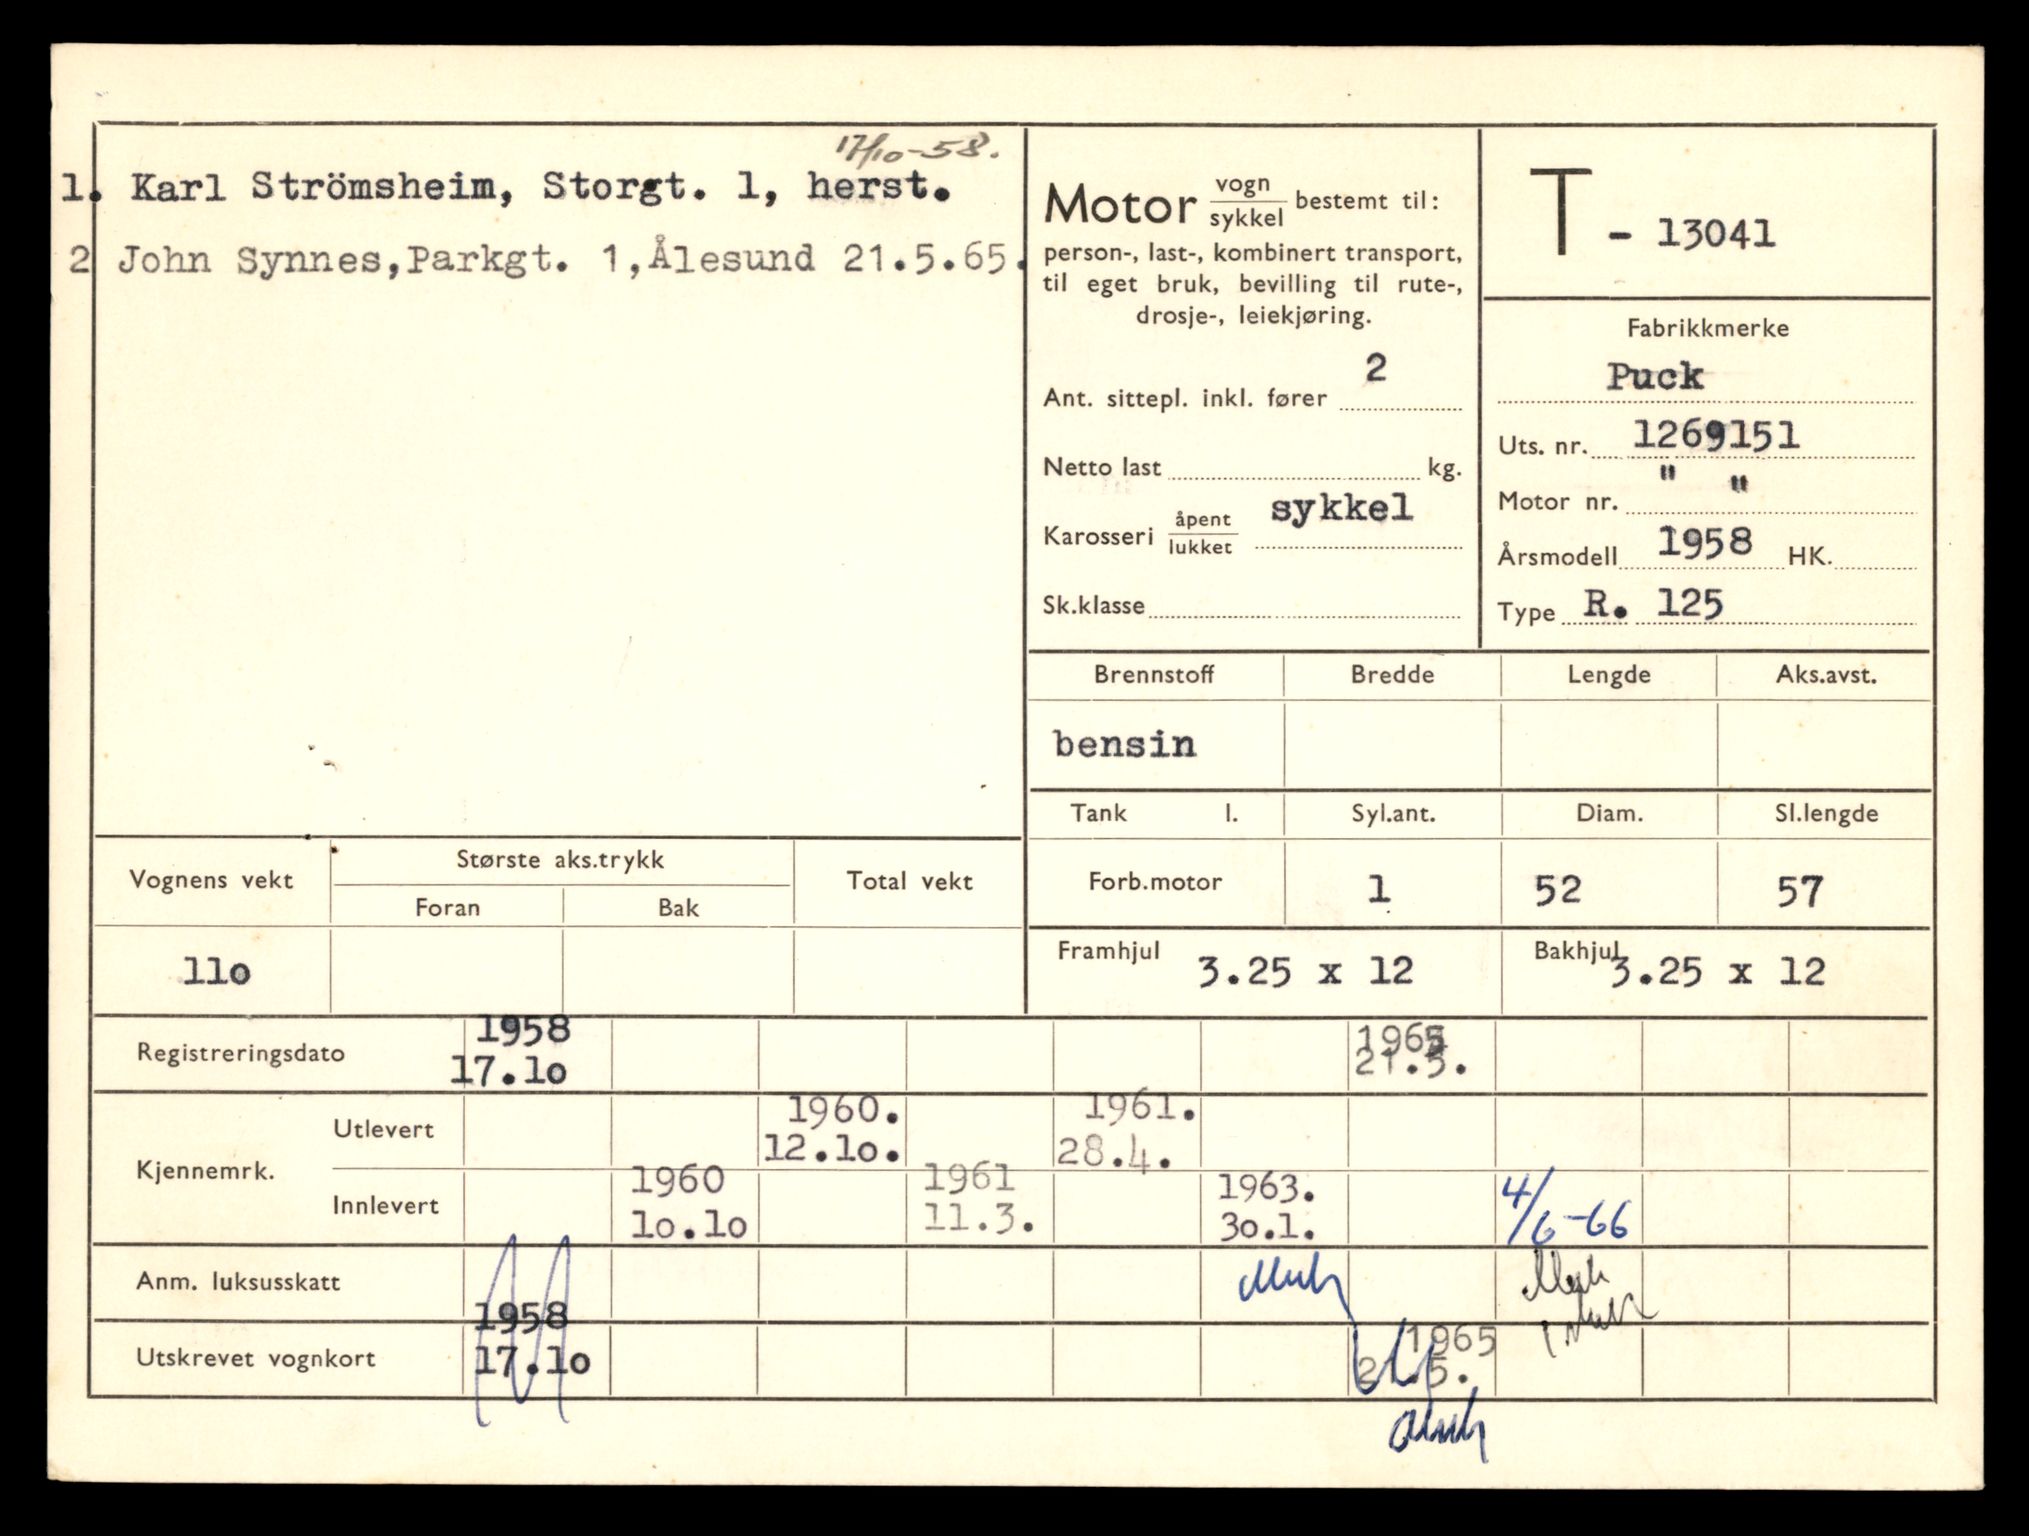 17/10-58.
1. Karl Strömsheim, Storgt. 1, herst.
2 John Synnes, Parkgt. 1, Ålesund 21.5.65.
Motor vogn/sykkel bestemt til:
person-, last-, kombinert transport,
til eget bruk, bevilling til rute-,
drosje-, leiekjøring.
2
Ant. sittepl. inkl. fører
Netto last kg.
Karosseri åpent/lukket sykkel
Sk.klasse
T - 13041
Fabrikkmerke
Puck
Uts. nr. 1269151
Motor nr. " "
Årsmodell 1958 HK.
Type R. 125
Brennstoff Bredde Lengde Aks.avst.
bensin
Tank l. Syl.ant. Diam. Sl.lengde
Forb.motor 1 52 57
Framhjul 3.25 x 12 Bakhjul 3.25 x 12
Vognens vekt Største aks.trykk Total vekt
Foran Bak
11o
1958 1965
Registreringsdato 17.1o 21.5.
1960. 1961.
Kjennemrk. Utlevert 12.1o. 28.4.
1960 1961 1963. 4/6-66
Innlevert 1o.1o 11.3. 3o.1.
Anm. luksusskatt
1958 1965
Utskrevet vognkort 17.1o 21.5.